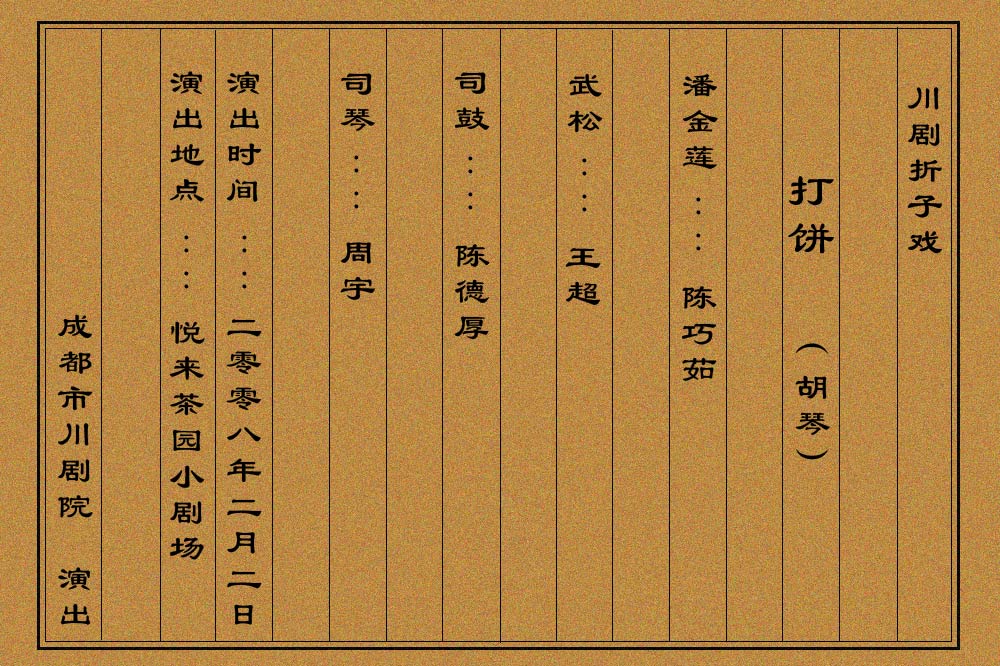 川剧折子戏
打饼 （胡琴）
潘金莲 ‥‥ 陈巧茹
武松 ‥‥ 王超
司鼓 ‥‥ 陈德厚
司琴 ‥‥ 周宇
演出时间 ‥‥ 二零零八年二月二日
演出地点 ‥‥ 悦来茶园小剧场
成都市川剧院 演出